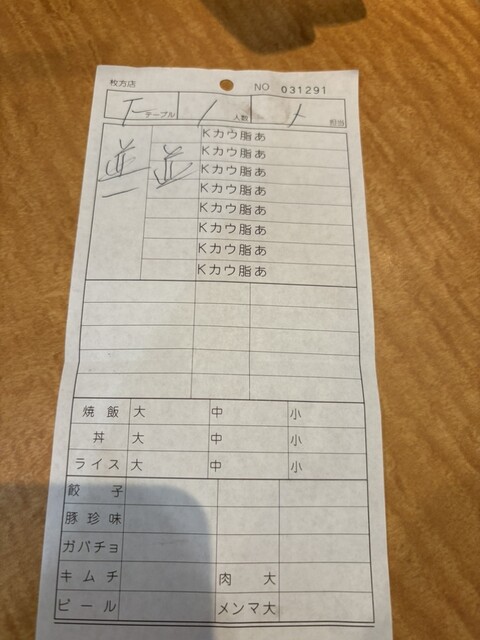 枚方店 NO 031291
テーブル 人数 担当
並 並 Kカウ脂あ
Kカウ脂あ
Kカウ脂あ
Kカウ脂あ
Kカウ脂あ
Kカウ脂あ
Kカウ脂あ
Kカウ脂あ
焼飯 大 中 小
丼 大 中 小
ライス 大 中 小
餃子
豚珍味
ガバチョ
キムチ 肉大
ビール メンマ大